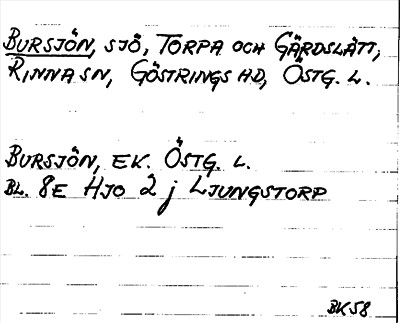 BURSJÖN, SJÖ, TORPA OCH GÄRDSLÄTT,
RINNA SN, GÖSTRINGS HD, ÖSTG. L.
BURSJÖN, EK. ÖSTG. L.
BL. 8E HJO 2 j LJUNGSTORP
BK58